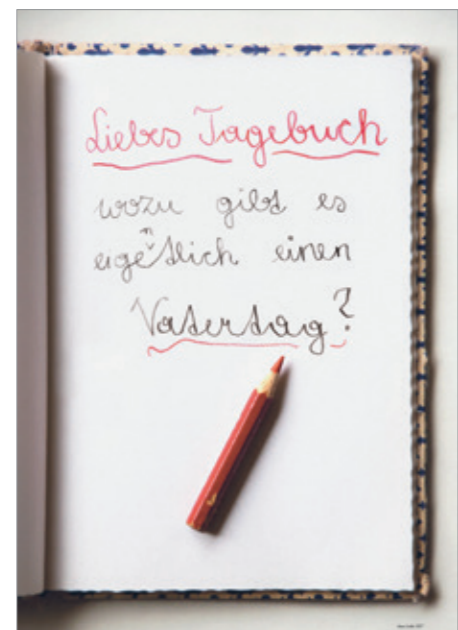 Liebes Tagebuch
wozu gibt es
eigentlich einen
Vatertag?